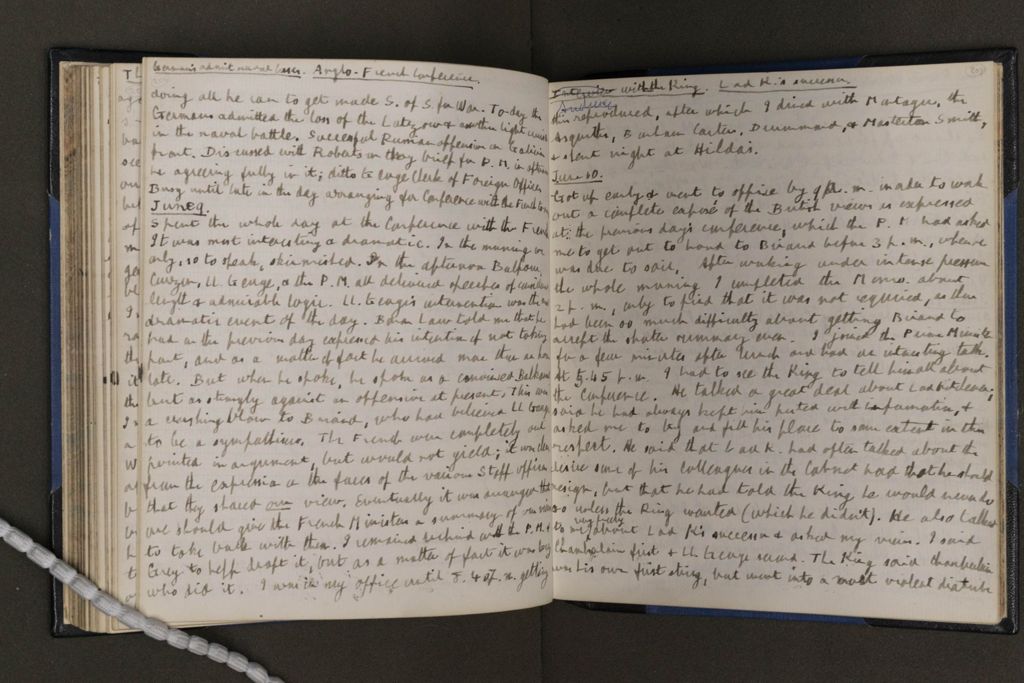 Germans admit naval losses. Anglo-French Conference.
doing all he can to get made S. of S. for War. To-day the
Germans admitted the loss of the Lutzow & another light cruiser
in the naval battle. Successful Russian offensive on Galician
front. Discussed with Robertson they brief for P.M. in afternoon
he agreeing fully in it; ditto to Clerk of Foreign Office.
Busy until late in the day arranging for Conference with the French
June 9.
Spent the whole day at the Conference with the French
It was most interesting & dramatic. In the morning we
only, so to speak, skirmished. In the afternoon Balfour,
Curzon, Ll. George, & the P.M. all delivered speeches of
length & admirable logic. Ll. George's intervention was the
dramatic event of the day. Bonar Law told me that he
had on the previous day expressed his intention of not taking
part, and as a matter of fact he arrived more than an hour
late. But when he spoke, he spoke as a convinced Balkan
but as strongly against an offensive at present. This was
a crushing blow to Briand, who had believed Ll. George
to be a sympathiser. The French were completely out
pointed in argument, but would not yield; it was clear
from the expression on the faces of the various Staff officers
that they shared our view. Eventually it was arranged that
we should give the French Ministers a summary of our
to take back with them. I remained behind with the P.M. &
Grey to help draft it, but as a matter of fact it was Grey
who did it. I was in my office until 8.45 p.m. getting
Interview with the King. Lord K.'s successor.
201
this reproduced, after which I dined with Montagu, the
Asquiths, Barbara Carter, Drummond, & Masterton Smith,
& slept night at Hilda's.
June 10.
Got up early & went to office by 9 a.m. in order to work
out a complete exposé of the British views as expressed
at the previous day's conference, which the P.M. had asked
me to get out to hand to Briand before 3 p.m., when he
was due to sail. After working under intense pressure
the whole morning I completed the Memo. about
2 p.m., only to find that it was not required, as there
had been so much difficulty about getting Briand to
accept the shorter summary even. I joined the Prime Minister
for a few minutes after lunch and had an interesting talk.
At 5.45 p.m. I had to see the King to tell him all about
the Conference. He talked a great deal about Lord Kitchener,
said he had always kept him posted with information, &
asked me to try and fill his place to some extent in this
respect. He said that Lord K. had often talked about the
desire some of his colleagues in the Cabinet had that he should
resign, but that he had told the King he would never do
so unless the King wanted (which he didn't). He also talked
to me very freely about Lord K's successor & asked my views. I said
Chamberlain first & Ll. George second. The King said Chamberlain
was his own first string, but went into a most violent diatribe